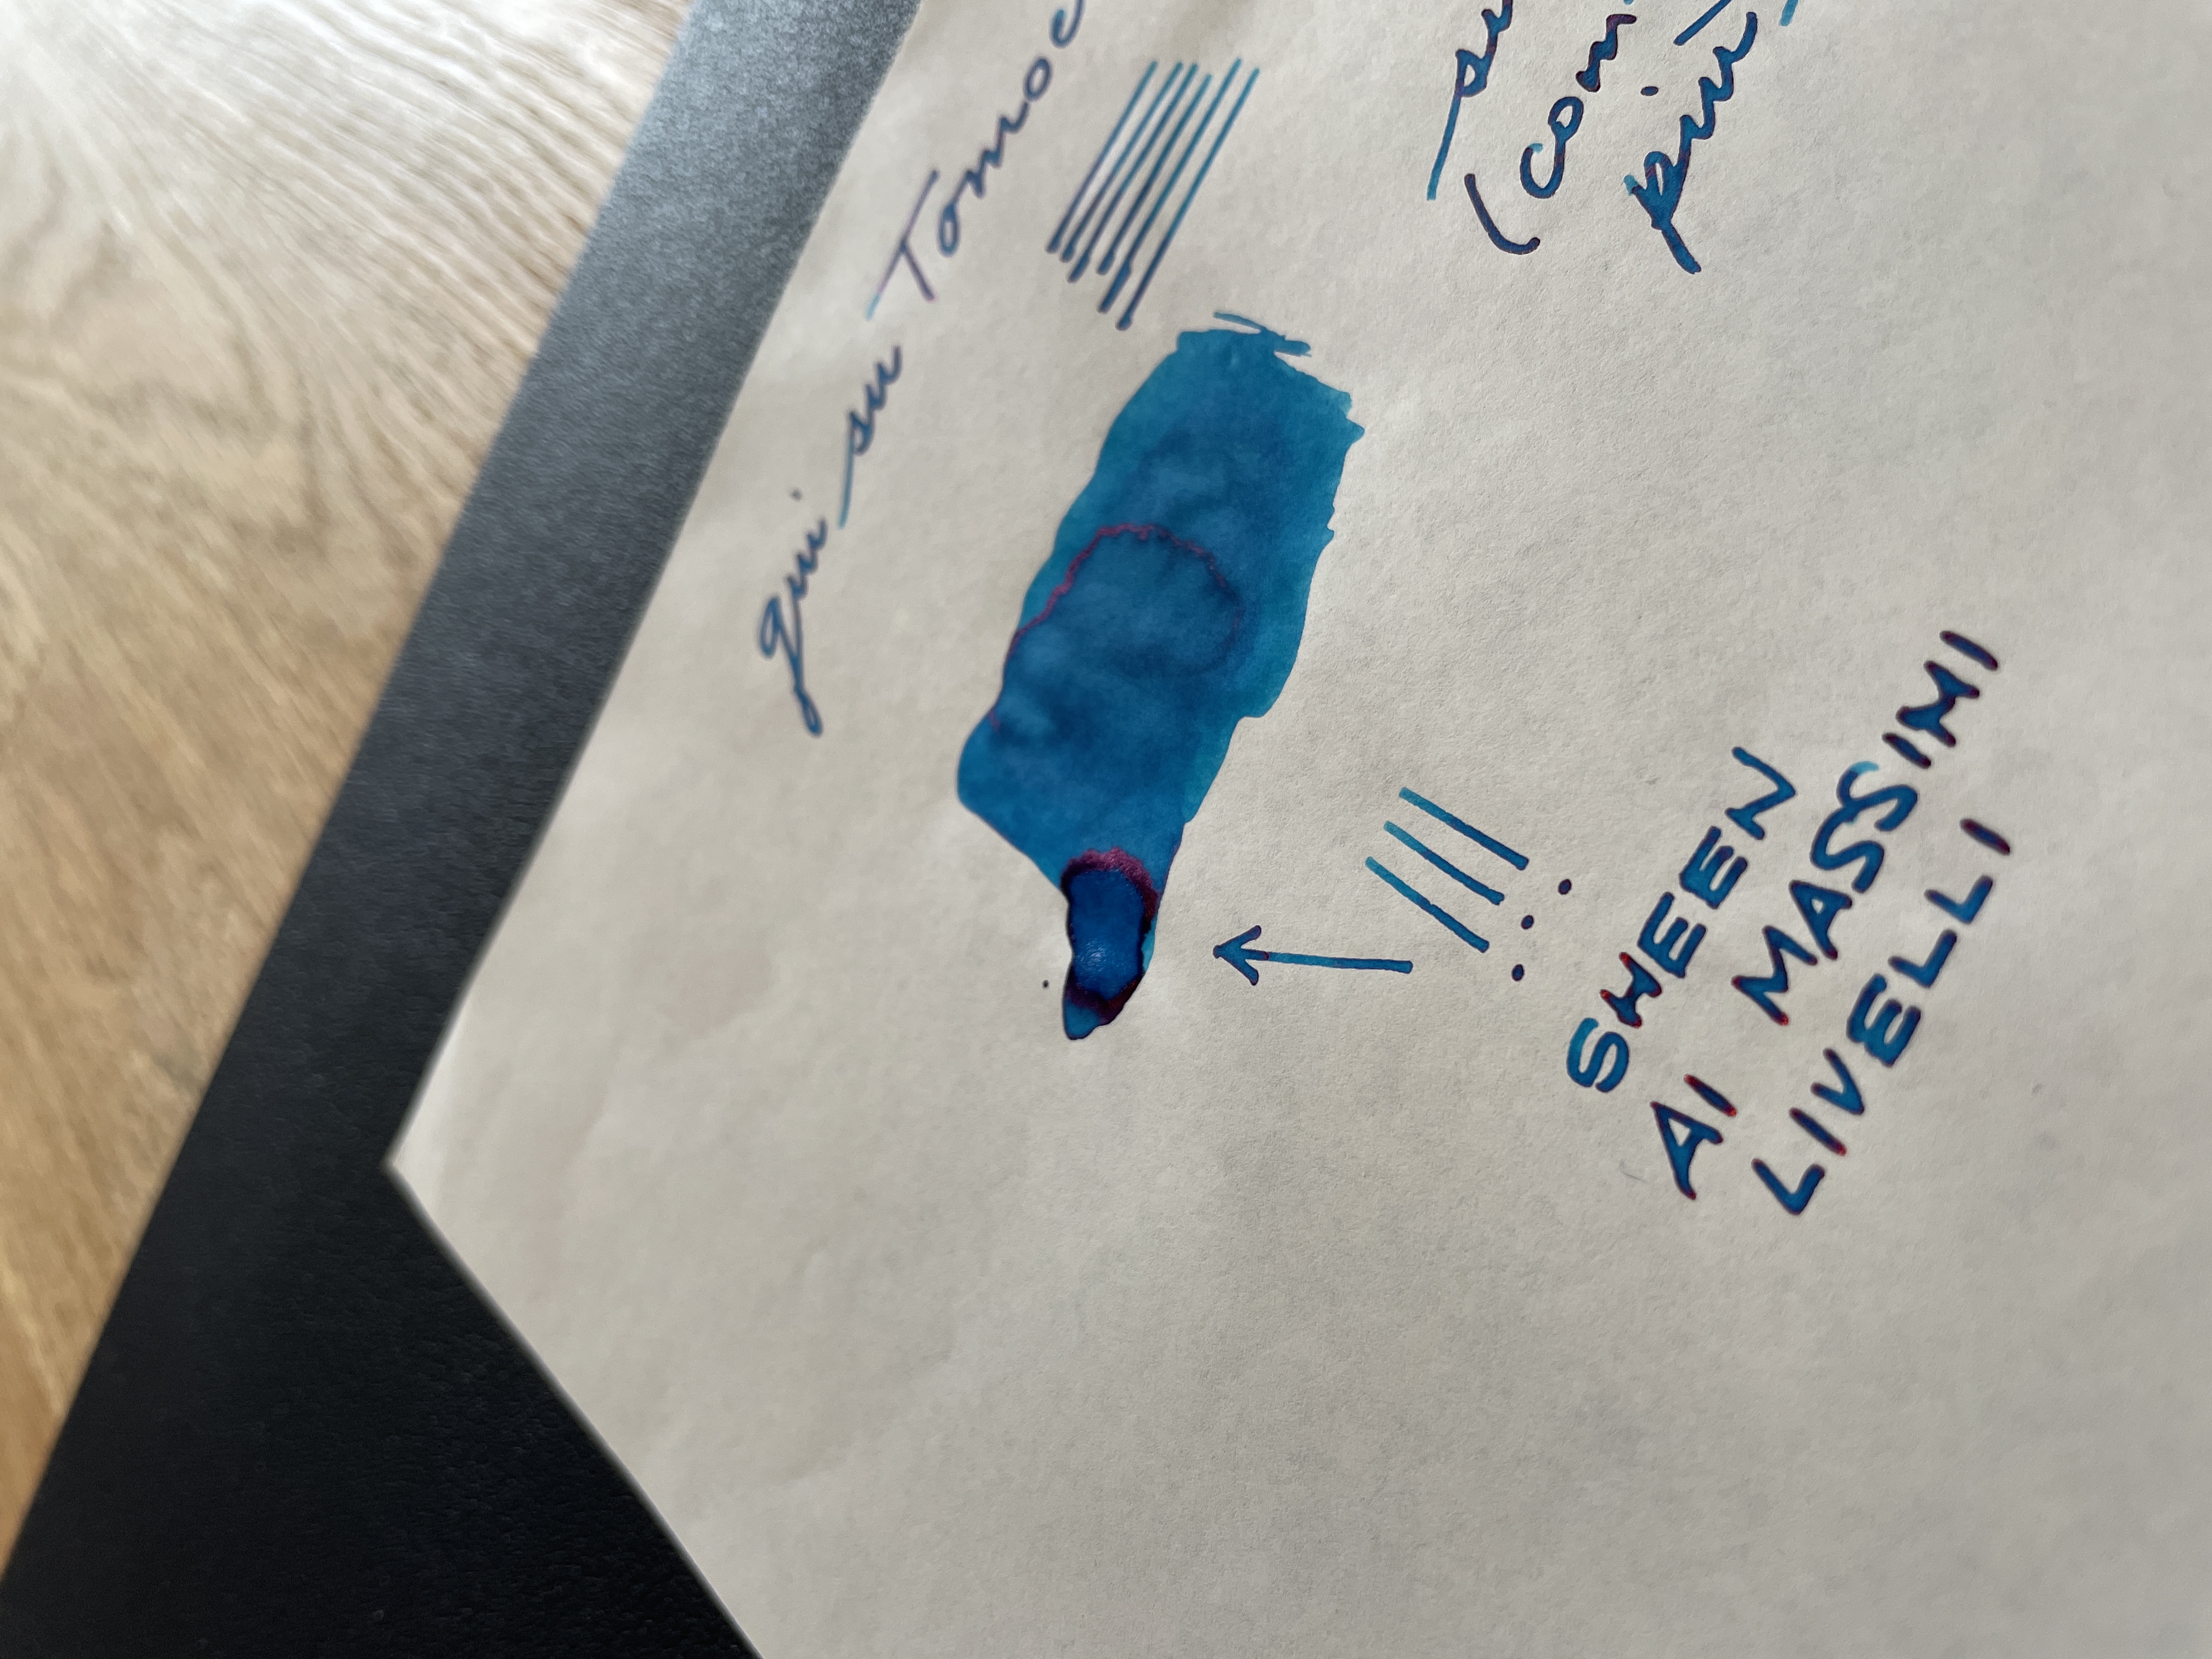 qui su Tomoe
(con
più
!!!
SHEEN
AI MASSIMI
LIVELLI